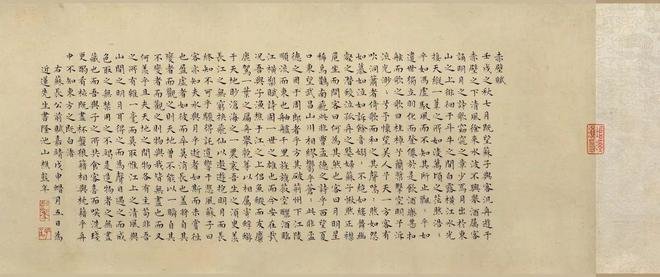 赤壁賦
壬戌之秋七月既望蘇子與客泛舟遊于
赤壁之下清風徐來水波不興舉酒屬客
誦明月之詩歌窈窕之章少焉月出於東
山之上徘徊斗牛之間白露橫江水光
接天縱一葦之所如凌萬頃之茫然浩浩
乎如馮虛馭風而不知其所止飄飄乎如
遺世獨立羽化而登僊於是飲酒樂甚扣
舷而歌之歌曰桂棹兮蘭槳擊空明兮泝
流光渺渺兮予懷望美人兮天一方客有
吹洞簫者倚歌而和之其聲嗚嗚然如怨
如慕如泣如訴餘音嫋嫋不絕如縷舞幽
壑之潛蛟泣孤舟之嫠婦蘇子愀然正襟
危坐而問客曰何為其然也客曰月明星
稀烏鵲南飛此非曹孟德之詩乎西望夏
口東望武昌山川相繆鬱乎蒼蒼此非孟
德之困于周郎者乎方其破荊州下江陵
順流而東也舳艫千里旌旗蔽空釃酒臨
江橫槊賦詩固一世之雄也而今安在哉
況吾與子漁樵于江渚之上侶魚蝦而友麋
鹿駕一葉之扁舟舉匏樽以相屬寄蜉蝣
于天地眇滄海之一粟哀吾生之須臾羨
長江之無窮挾飛仙以遨遊抱明月而長
終知不可乎驟得託遺響于悲風蘇子曰
客亦知夫水與月乎逝者如斯而未嘗往
也盈虛者如彼而卒莫消長也蓋將自其
變者而觀之則天地曾不能以一瞬自其
不變者而觀之則物與我皆無盡也而又
何羨乎且夫天地之間物各有主苟非吾
之所有雖一毫而莫取惟江上之清風與
山間之明月耳得之而為聲目遇之而成
色取之無禁用之不竭是造物者之無盡
藏也而吾與子之所共食客喜而笑洗盞
更酌肴核既盡杯盤狼藉相與枕藉乎舟
中不知東方之既白
右蘇長公前赤壁賦嘉靖戊申月五日為
近蓮先生書隆池山樵彭年